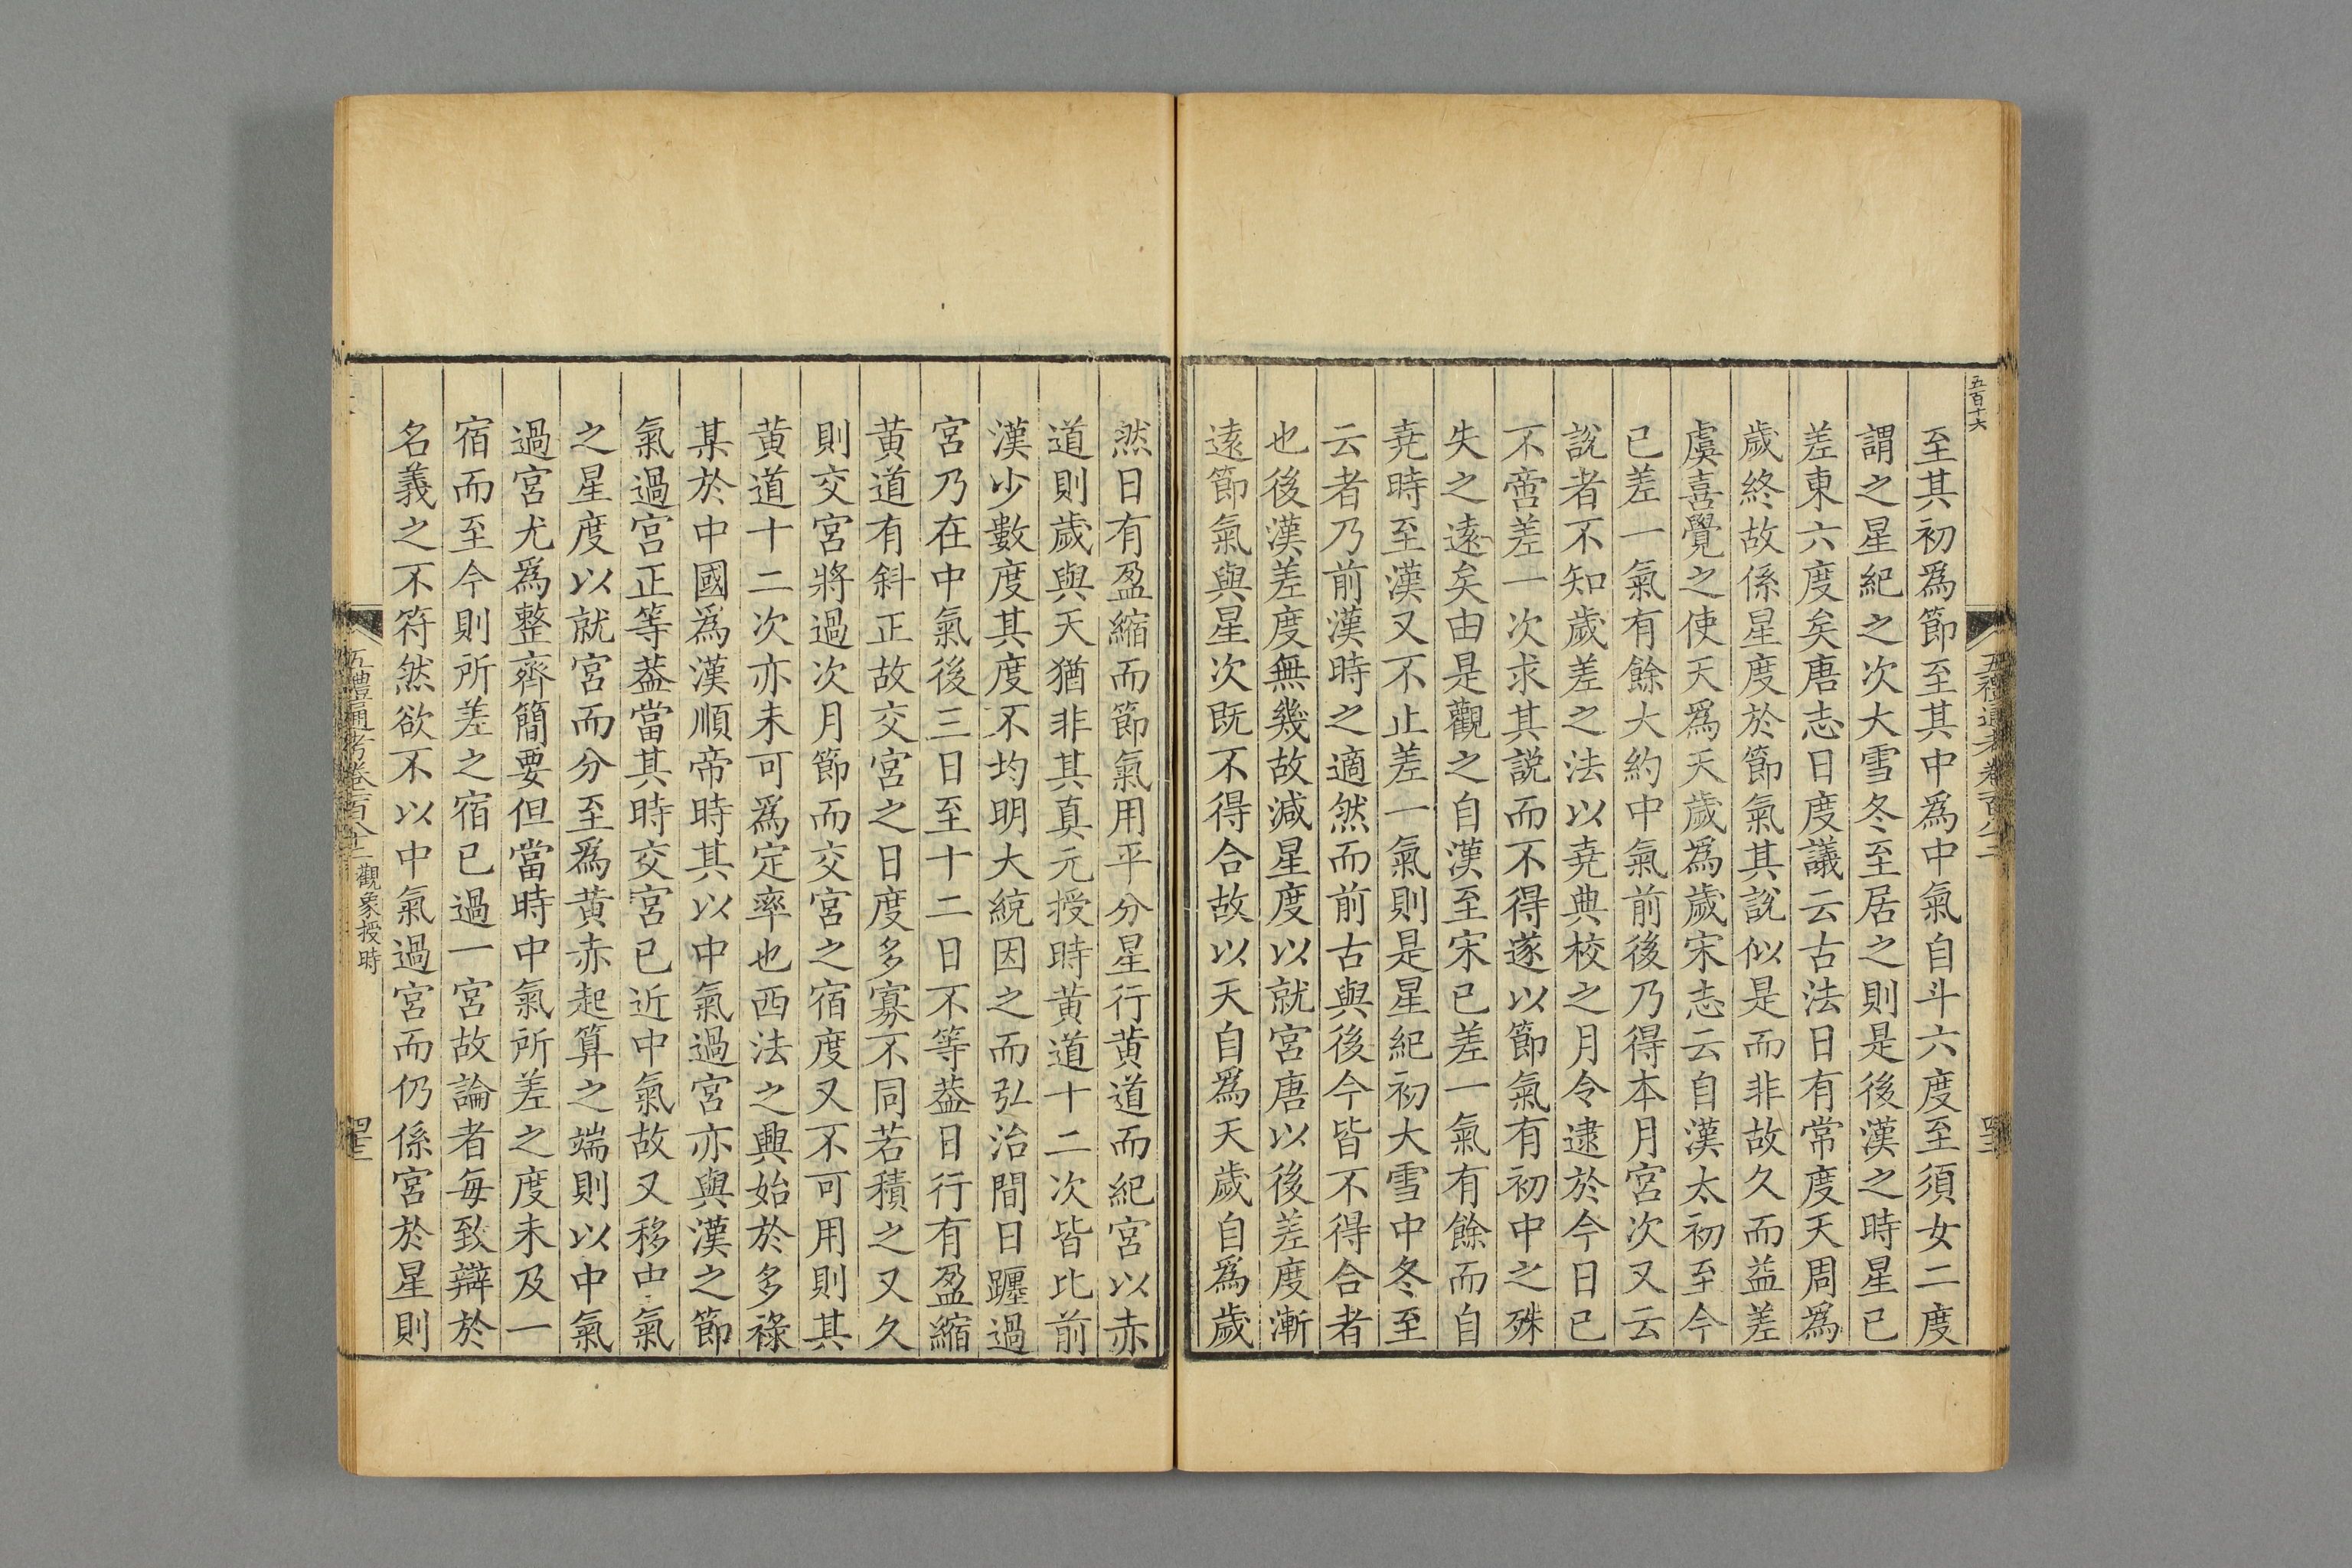 五百十六
至其初爲節至其中爲中氣自斗六度至須女二度
謂之星紀之次大雪冬至居之則是後漢之時星已
差東六度矣唐志日度議云古法日有常度天周爲
歲終故係星度於節氣其說似是而非故久而益差
虞喜覺之使天爲天歲爲歲宋志云自漢太初至今
已差一氣有餘大約中氣前後乃得本月宮次又云
說者不知歲差之法以堯典校之月令逮於今日已
不啻差一次求其説而不得遂以節氣有初中之殊
失之遠矣由是觀之自漢至宋已差一氣有餘而自
堯時至漢又不止差一氣則是星紀初大雪中冬至
云者乃前漢時之適然而前古與後今皆不得合者
也後漢差度無幾故減星度以就宮唐以後差度漸
遠節氣與星次既不得合故以天自爲天歲自爲歲
然日有盈縮而節氣用平分星行黃道而紀宮以赤
道則歲與天猶非其真元授時黃道十二次皆比前
漢少數度其度不均明大統因之而弘治間日躔過
宮乃在中氣後三日至十二日不等葢日行有盈縮
黃道有斜正故交宮之日度多寡不同若積之又久
則交宮將過次月節而交宮之宿度又不可用則其
黃道十二次亦未可爲定率也西法之興始於多祿
某於中國爲漢順帝時其以中氣過宮亦與漢之節
氣過宮正等葢當其時交宮已近中氣故又移中氣
之星度以就宮而分至爲黃赤起算之端則以中氣
過宮尤爲整齊簡要但當時中氣所差之度未及一
宿而至今則所差之宿已過一宮故論者每致辯於
名義之不符然欲不以中氣過宮而仍係宮於星則
五禮通考卷百八十二 觀象授時